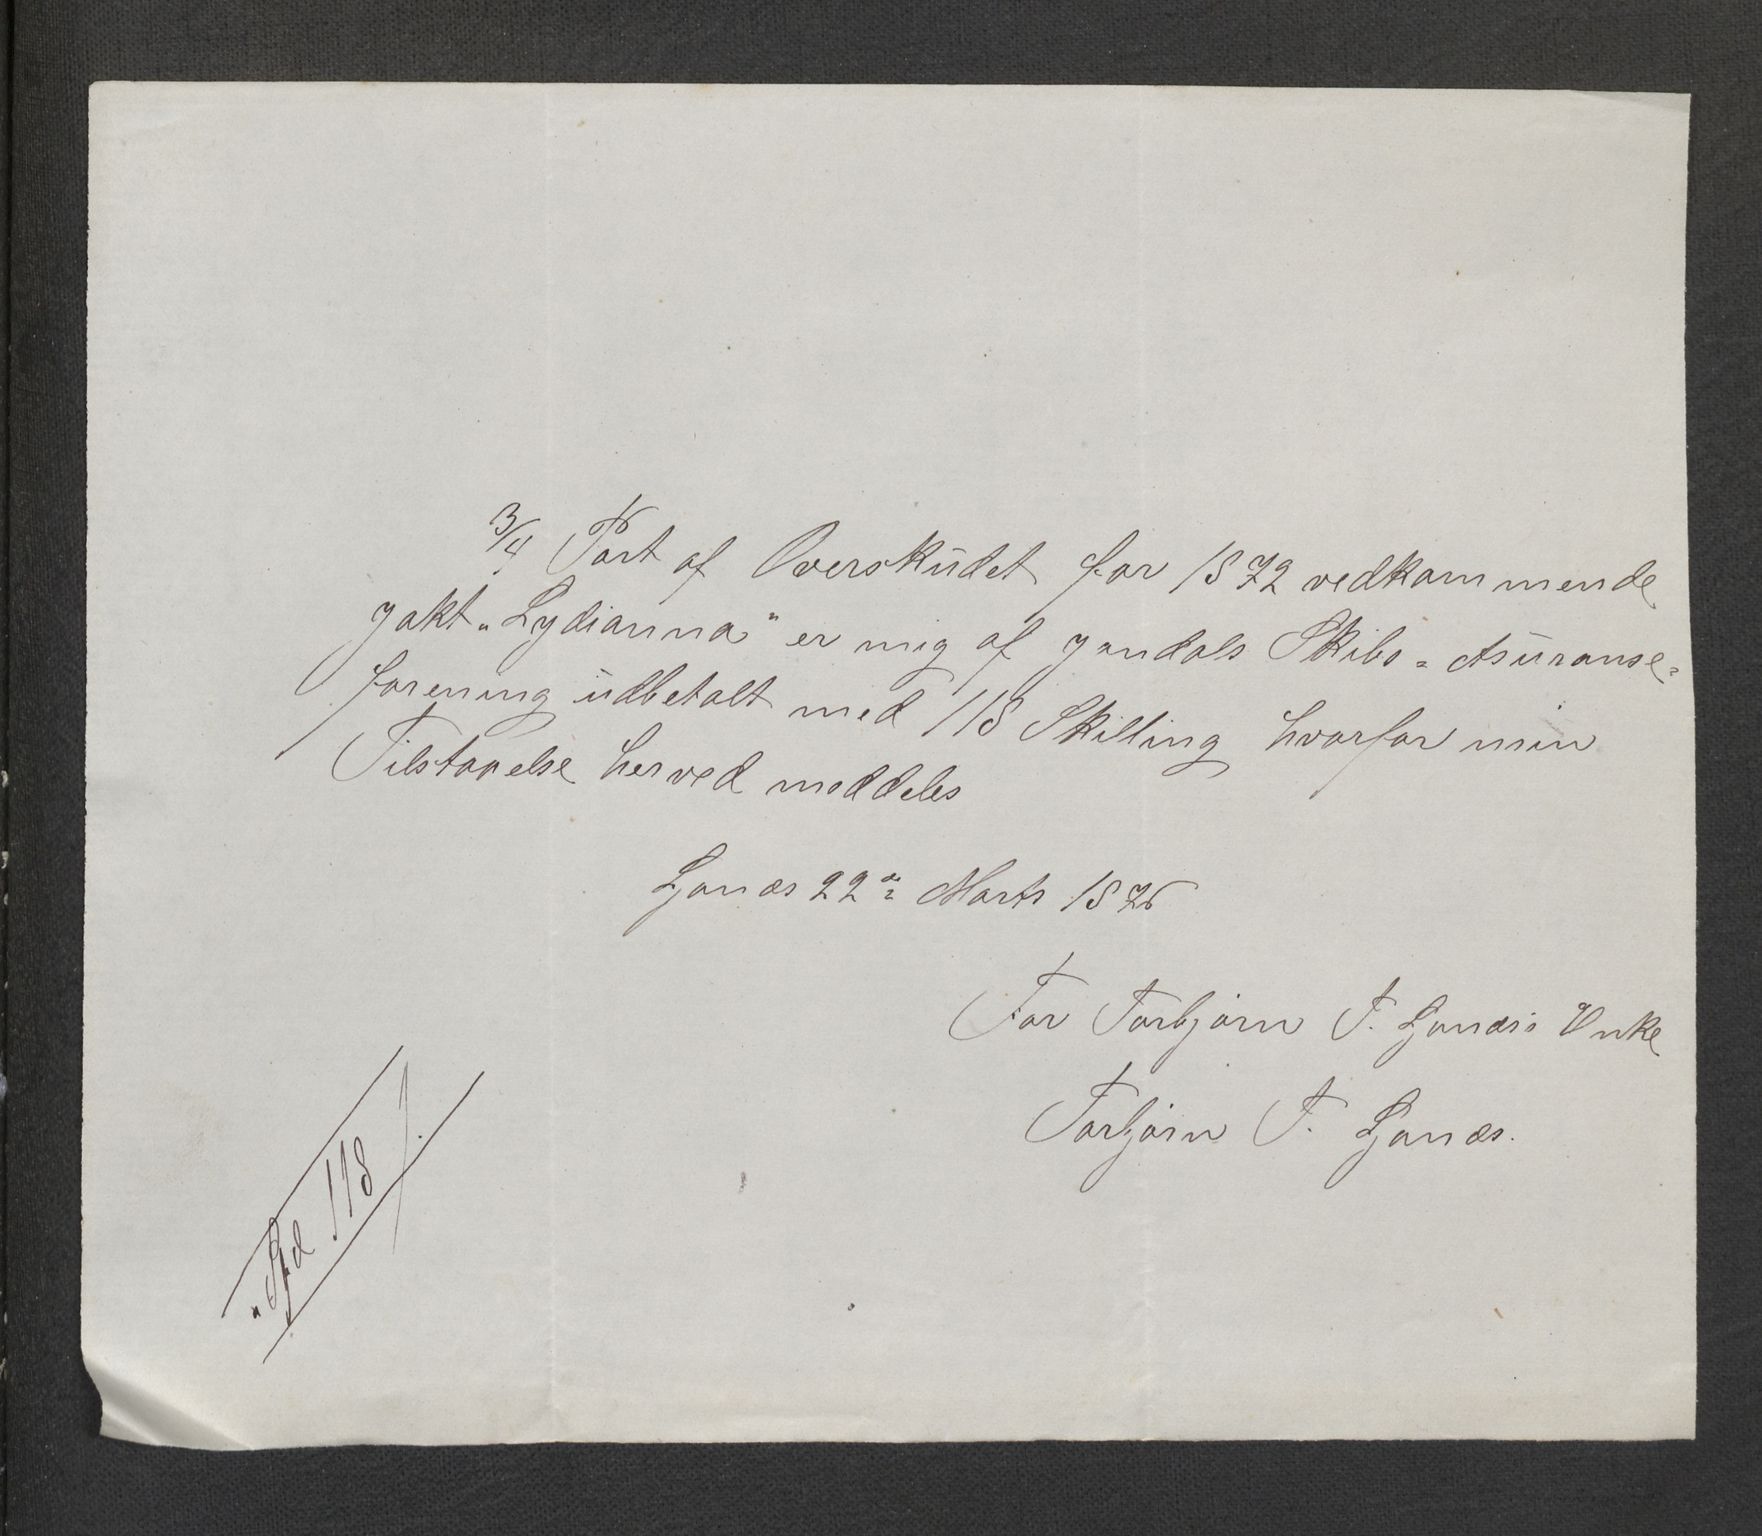 3/4 Part af Overskudet for 1872 vedkommende
Jakt „Lydianna" er mig af Jondals Skibs-Asuranse-
forening udbetalt med 118 Skilling hvorfor min
Tilstaaelse herved meddeles
Ljones 22de Marts 1876
For Torbjørn T. Ljonæs's Enke
Torbjørn T. Ljonæs.
" Spd 118